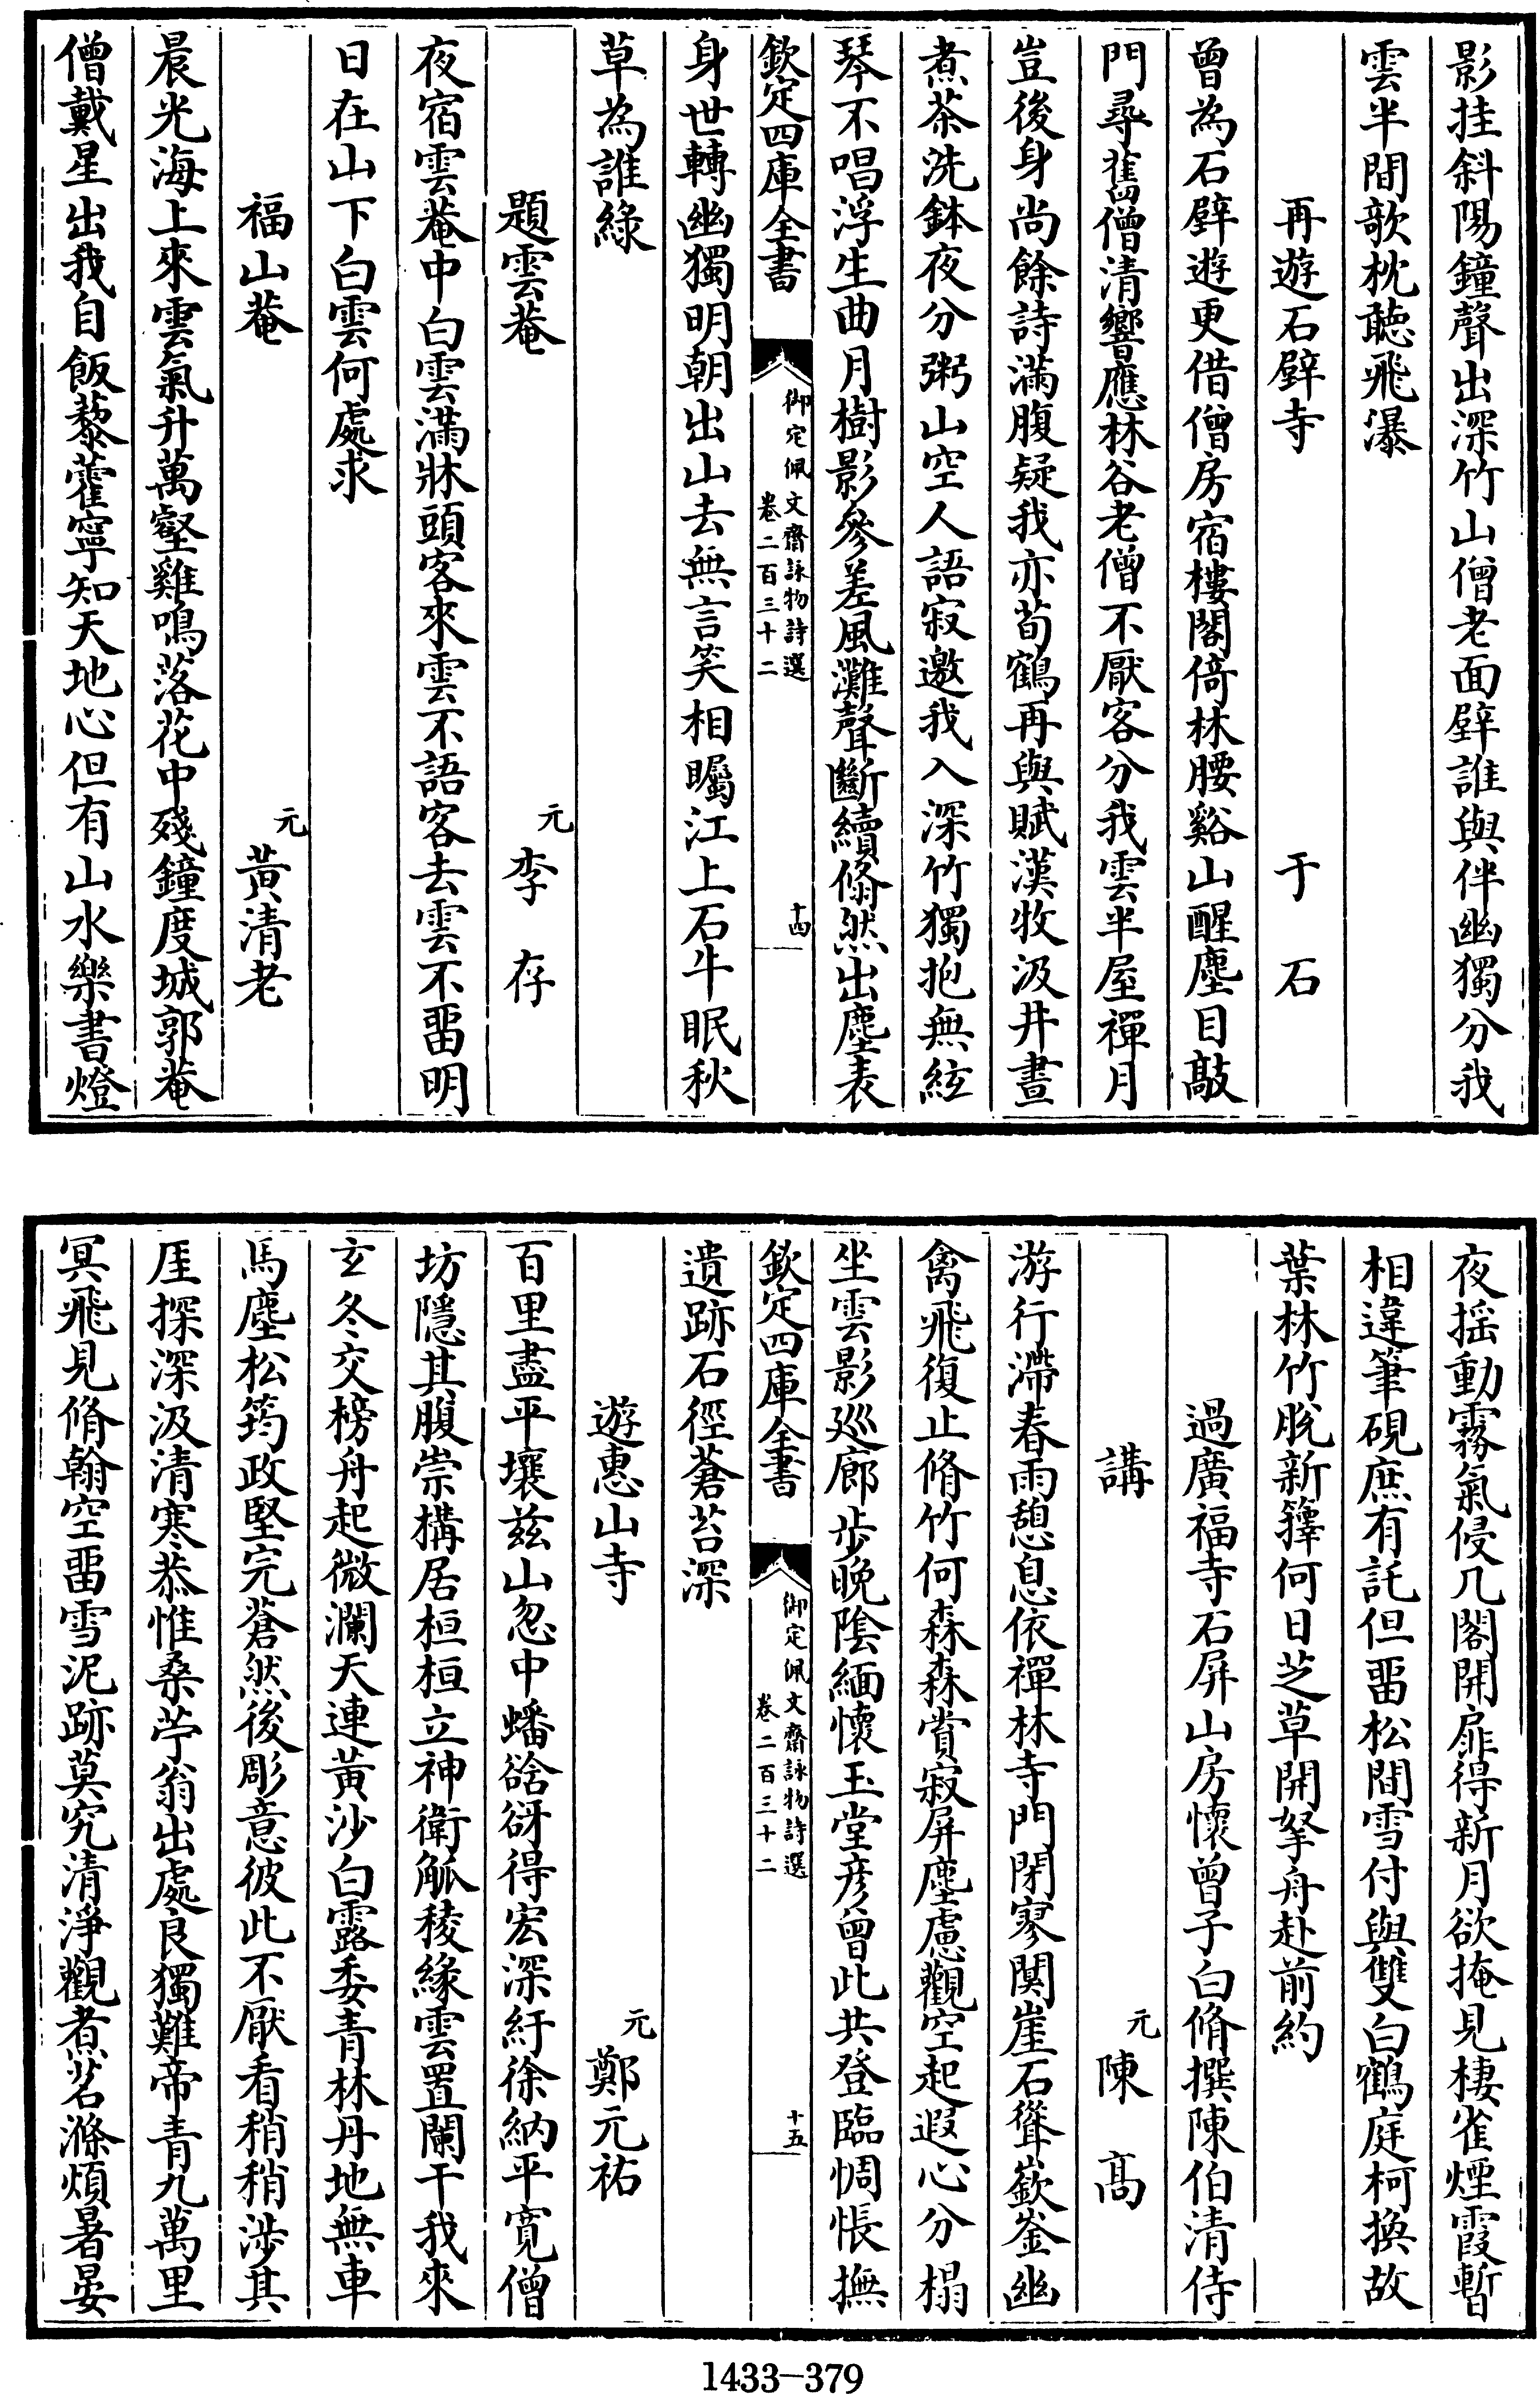 影挂斜陽鐘聲出深竹山僧老面壁誰與伴幽獨分我
雲半間歌枕聽飛瀑
再遊石壁寺　于石
曾為石壁遊更借僧房宿樓閣倚林腰谿山醒塵目敲
門尋舊僧清響應林谷老僧不厭客分我雲半屋禪月
豈後身尚餘詩滿腹疑我亦荀鶴再與賦漢牧汲井晝
煮茶洗鉢夜分粥山空人語寂邀我入深竹獨抱無絃
琴不唱浮生曲月樹影參差風灘聲斷續翛然出塵表
欽定四庫全書　御定佩文齋詠物詩選　卷二百三十二　十四
身世轉幽獨明朝出山去無言笑相矚江上石牛眠秋
草為誰綠
題雲菴　元李存
夜宿雲菴中白雲滿牀頭客來雲不語客去雲不畱明
日在山下白雲何處求
福山菴　元黃清老
晨光海上來雲氣升萬壑雞鳴落花中殘鐘度城郭菴
僧戴星出我自飯藜藿寧知天地心但有山水樂書燈
夜搖動霧氣侵几閣開扉得新月欲掩見棲雀煙霞暫
相違筆硯庶有託但畱松間雪付與雙白鶴庭柯換故
葉林竹脫新籜何日芝草開拏舟赴前約
過廣福寺石屏山房懷曾子白脩撰陳伯清侍
講　元陳高
游行滯春雨憩息依禪林寺門閉寥闃崖石聳嶔崟幽
禽飛復止脩竹何森森賞寂屏塵慮觀空起遐心分榻
坐雲影廵廊步晩陰緬懷玉堂彥曾此共登臨惆悵撫
欽定四庫全書　御定佩文齋詠物詩選　卷二百三十二　十五
遺跡石徑蒼苔深
遊惠山寺　元鄭元祐
百里盡平壤兹山忽中蟠谽谺得宏深紆徐納平寬僧
坊隱其腹崇構居桓桓立神衛觚稜緣雲置闌干我來
玄冬交榜舟起微瀾天連黃沙白露委青林丹地無車
馬塵松筠政堅完蒼然後彫意彼此不厭看稍稍涉其
厓探深汲清寒恭惟桑苧翁出處良獨難帝青九萬里
冥飛見脩翰空畱雪泥跡莫究清淨觀煮茗滌煩暑晏
1433-379